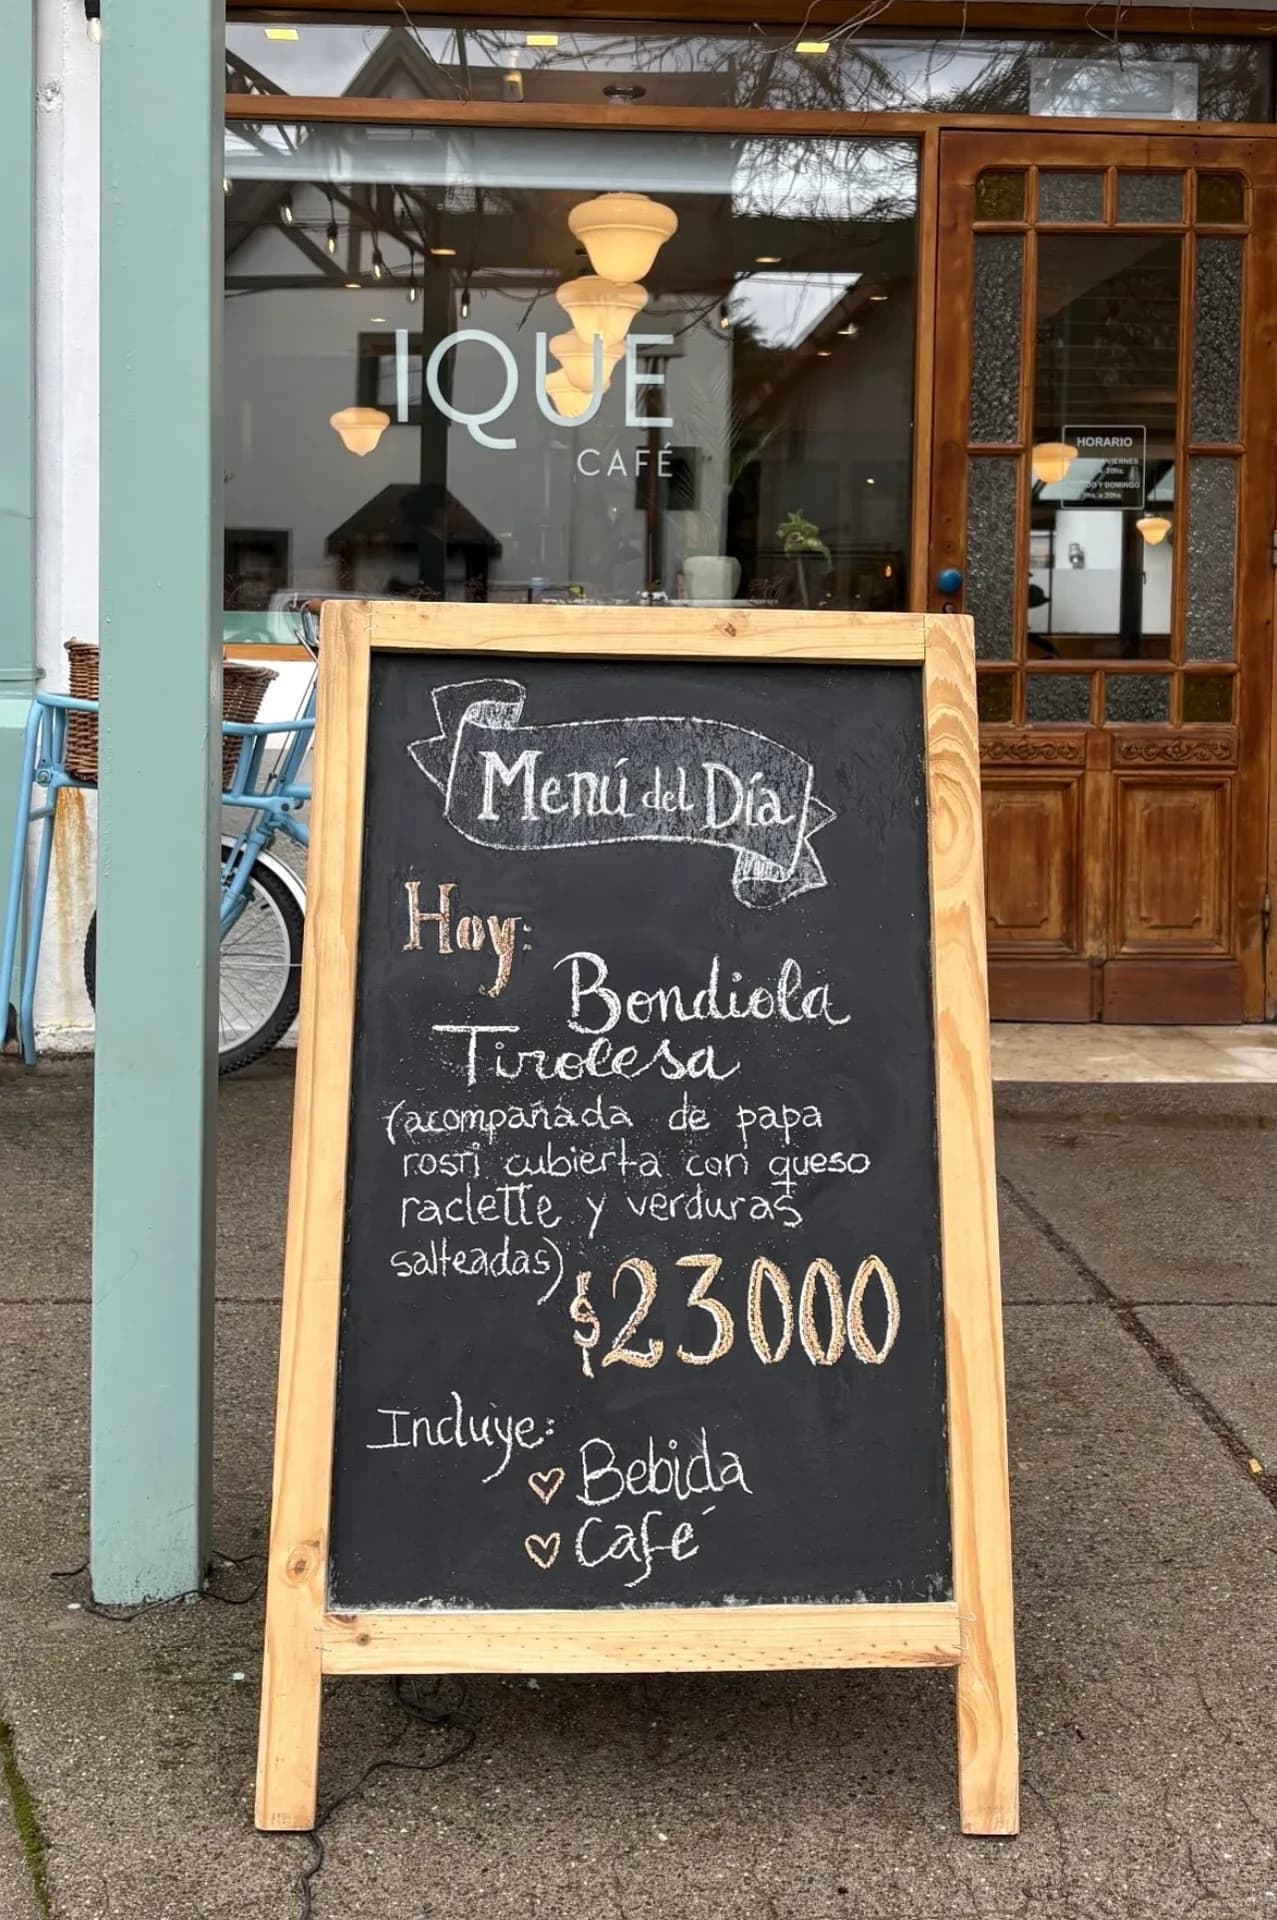 IQUE
CAFÉ
HORARIO
VIERNES
20hs.
Y DOMINGO
a 20hs
Menú del Día
Hoy:
Bondiola
Tirolesa
(acompañada de papa
rosti cubierta con queso
raclette y verduras
salteadas)
$23000
Incluye:
♡ Bebida
♡ Café